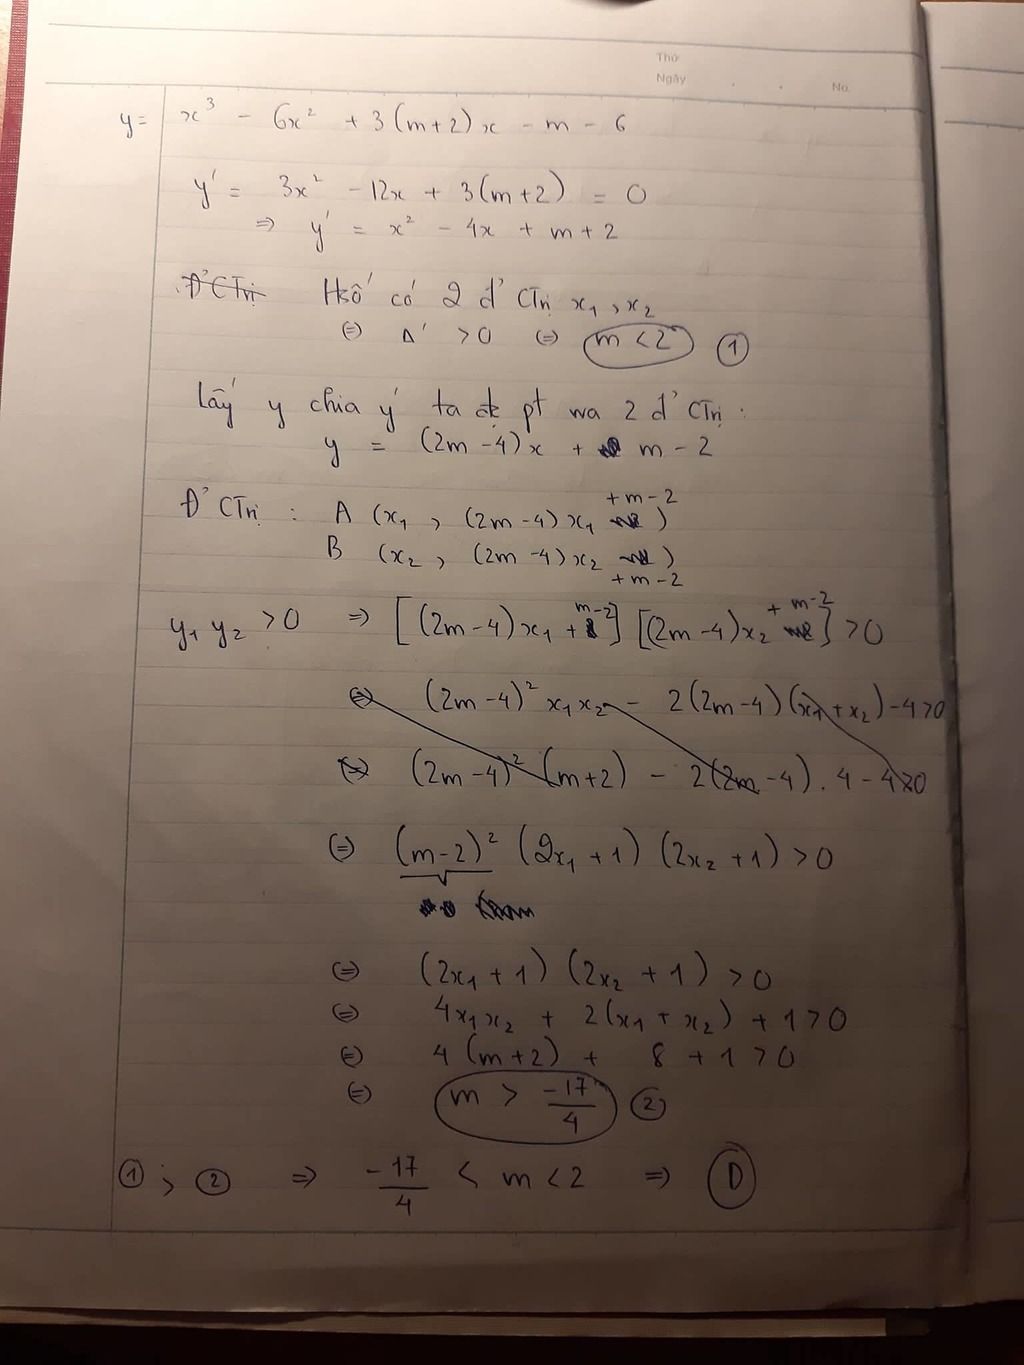 Thứ
Ngày . . No.
y = x³ - 6x² + 3(m+2)x - m - 6
y' = 3x² - 12x + 3(m+2) = 0
⇒ y' = x² - 4x + m + 2
Đ' CTrị Hsố có 2 đ' CTrị x₁, x₂
⇔ Δ' > 0 ⇔ m < 2 ①
Lấy y chia y' ta đc pt wa 2 đ' CTrị :
y = (2m - 4)x + m - 2
Đ' CTrị : A (x₁, (2m - 4)x₁ + m - 2)
B (x₂, (2m - 4)x₂ + m - 2)
y₁ y₂ > 0 ⇒ [(2m - 4)x₁ + m - 2] [(2m - 4)x₂ + m - 2] > 0
⇔ (2m - 4)² x₁x₂ - 2(2m - 4)(x₁ + x₂) - 4 > 0
⇔ (2m - 4)² (m + 2) - 2(2m - 4) . 4 - 4 > 0
⇔ (m - 2)² (2x₁ + 1) (2x₂ + 1) > 0
⇔ (2x₁ + 1) (2x₂ + 1) > 0
⇔ 4x₁x₂ + 2(x₁ + x₂) + 1 > 0
⇔ 4(m + 2) + 8 + 1 > 0
⇔ m > -17/4 ②
① ; ② ⇒ -17/4 < m < 2 ⇒ D